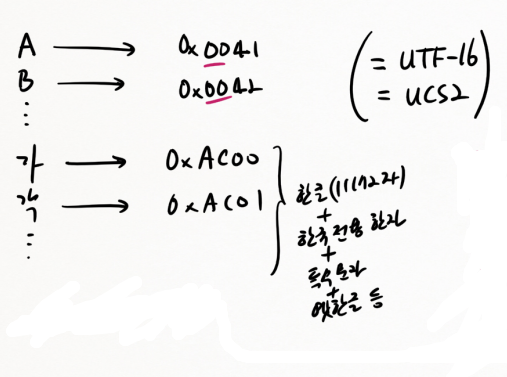 A → 0x0041
B → 0x0042
⋮
가 → 0xAC00
각 → 0xAC01
⋮
(= UTF-16
= UCS2)
한글(11172자)
+
한국전용 한자
+
특수문자
+
옛한글 등